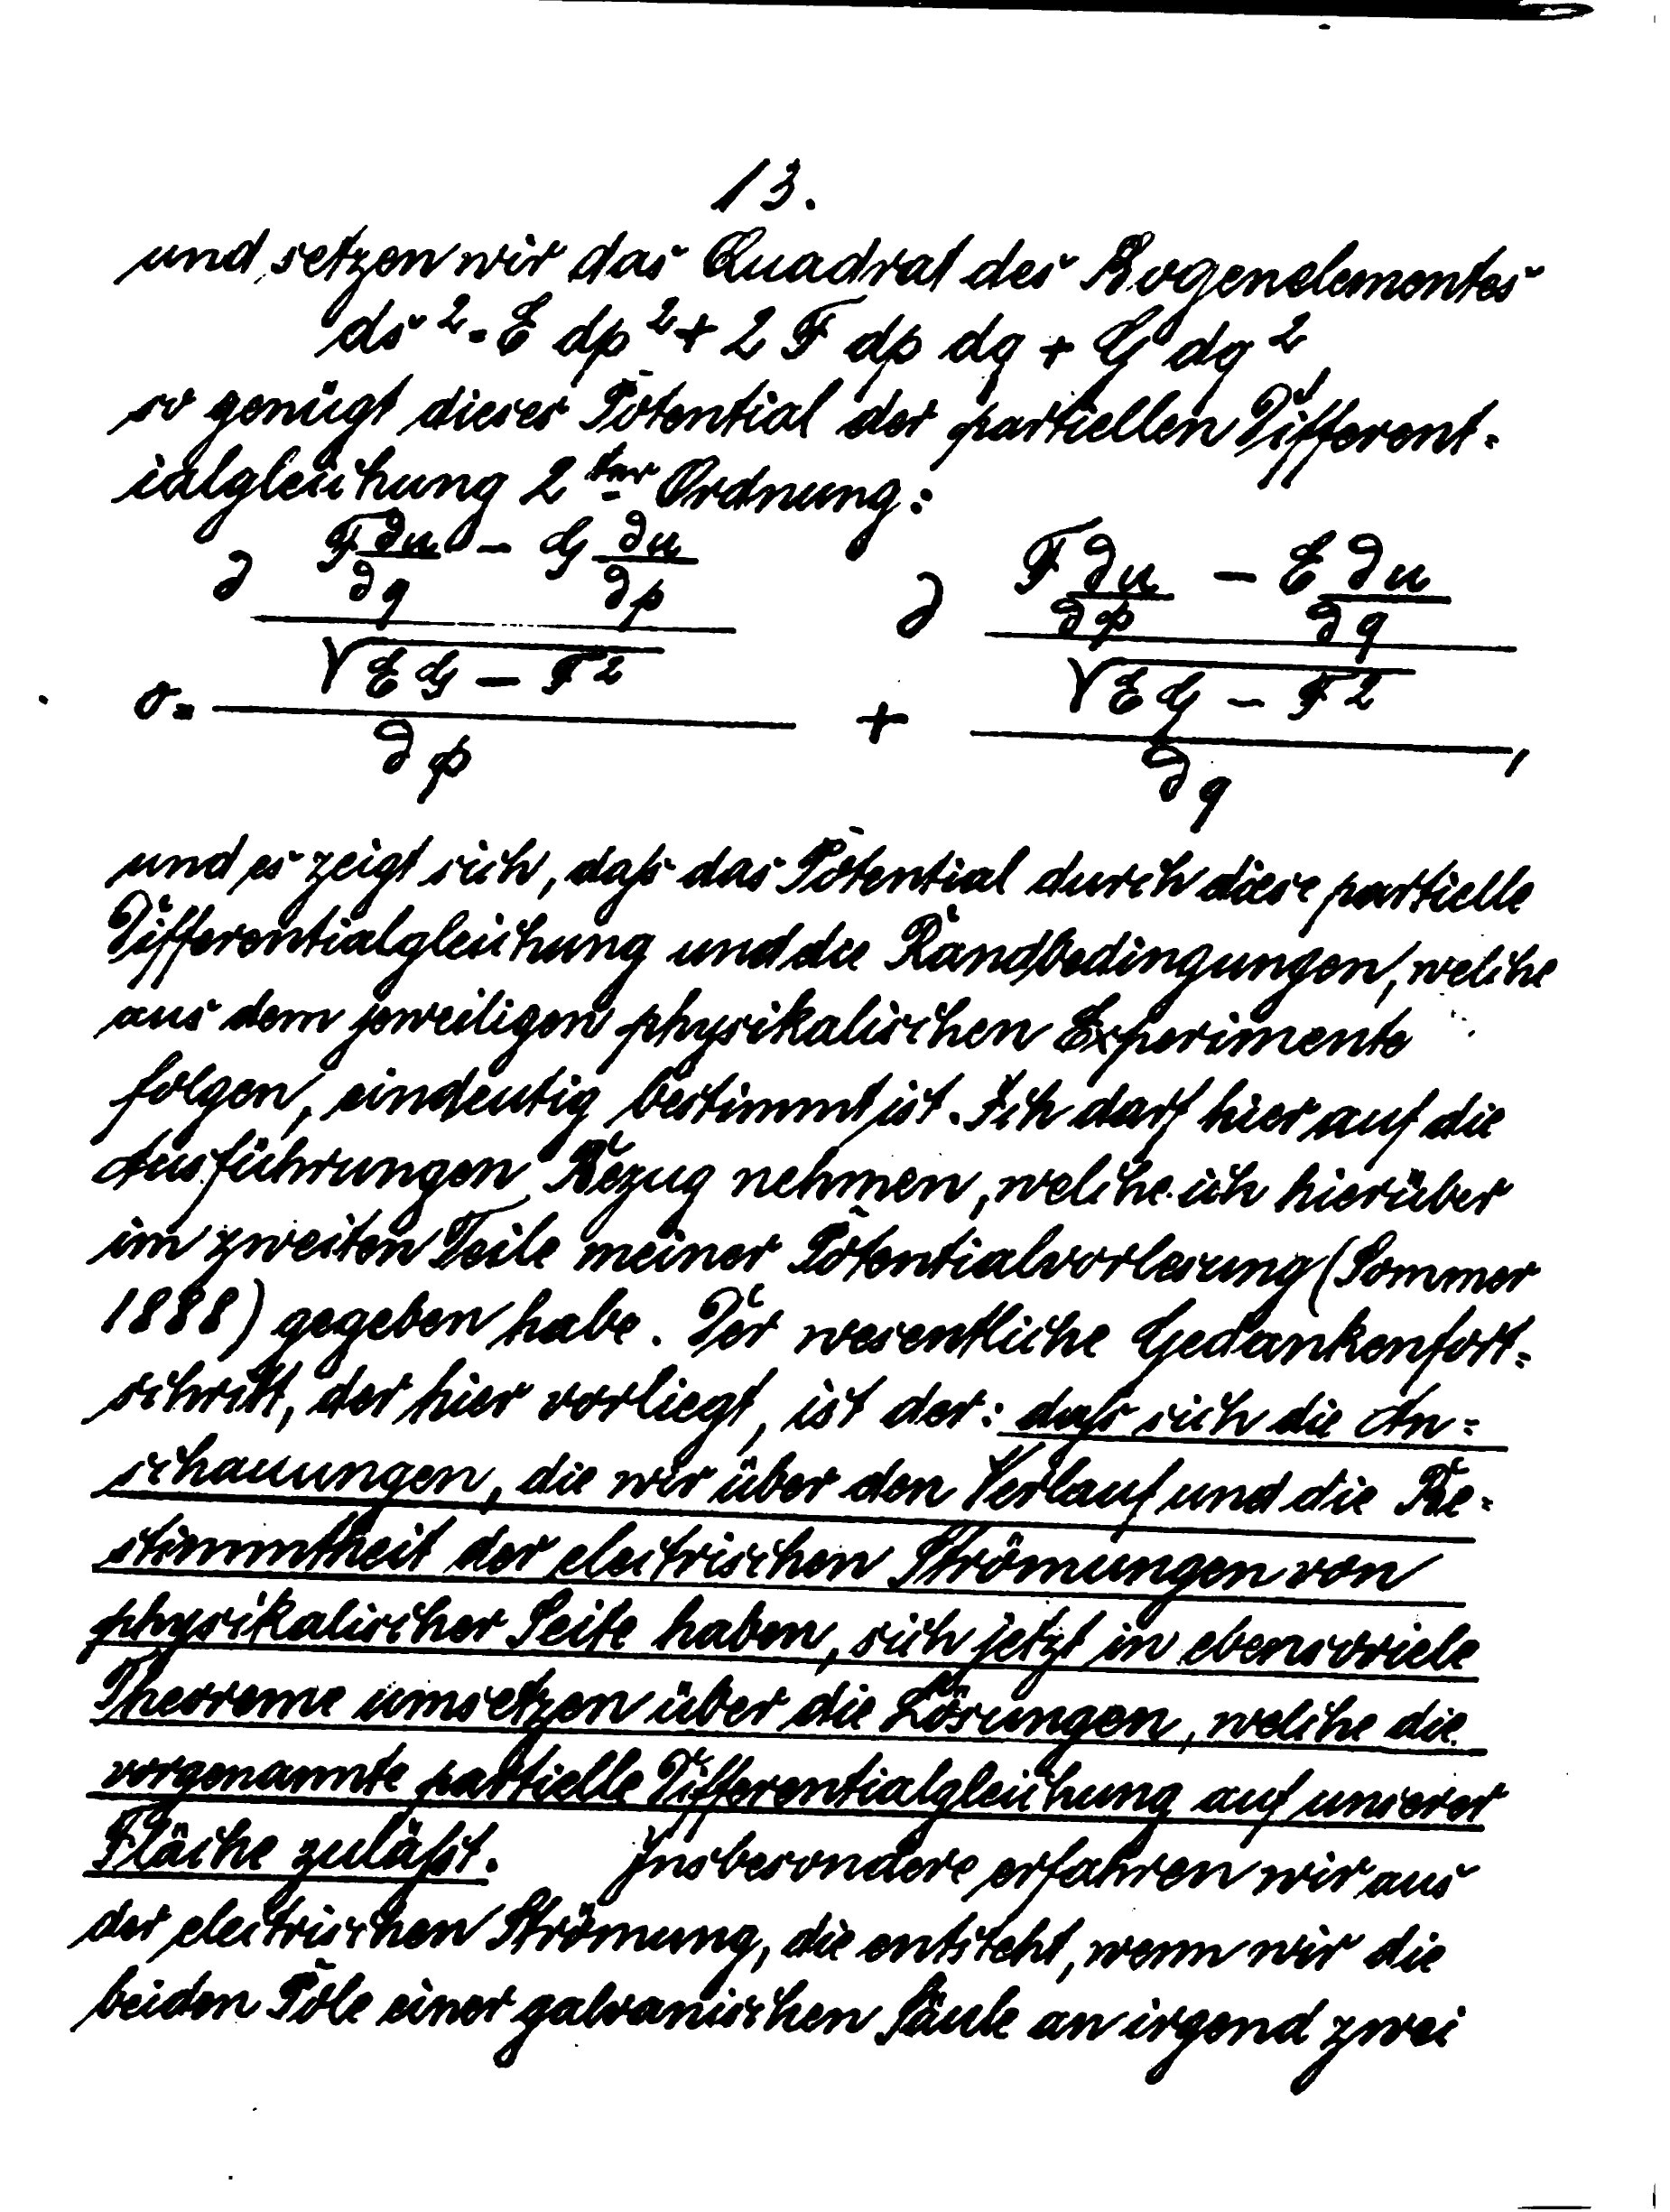 13.
und setzen wir das Quadrat des Bogenelementes
ds² = E dp² + 2 F dp dq + G dq²,
so genügt dieses Potential der partiellen Different-
ialgleichung 2ter Ordnung:
0 = ∂ (F ∂u/∂q − G ∂u/∂p)/√(EG − F²) / ∂p + ∂ (F ∂u/∂p − E ∂u/∂q)/√(EG − F²) / ∂q,
und es zeigt sich, daß das Potential durch diese partielle
Differentialgleichung und die Randbedingungen, welche
aus dem jeweiligen physikalischen Experimente
folgen, eindeutig bestimmt ist. Ich darf hier auf die
Ausführungen Bezug nehmen, welche ich hierüber
im zweiten Teile meiner Potentialvorlesung (Sommer
1888) gegeben habe. Der wesentliche Gedankenfort-
schritt, der hier vorliegt, ist der: daß sich die An-
schauungen, die wir über den Verlauf und die Be-
stimmtheit der electrischen Strömungen von
physikalischer Seite haben, sich jetzt in ebensoviele
Theoreme umsetzen über die Lösungen, welche die
vorgenannte partielle Differentialgleichung auf unserer
Fläche zuläßt. Insbesondere erfahren wir aus
der electrischen Strömung, die entsteht, wenn wir die
beiden Pole einer galvanischen Säule an irgend zwei